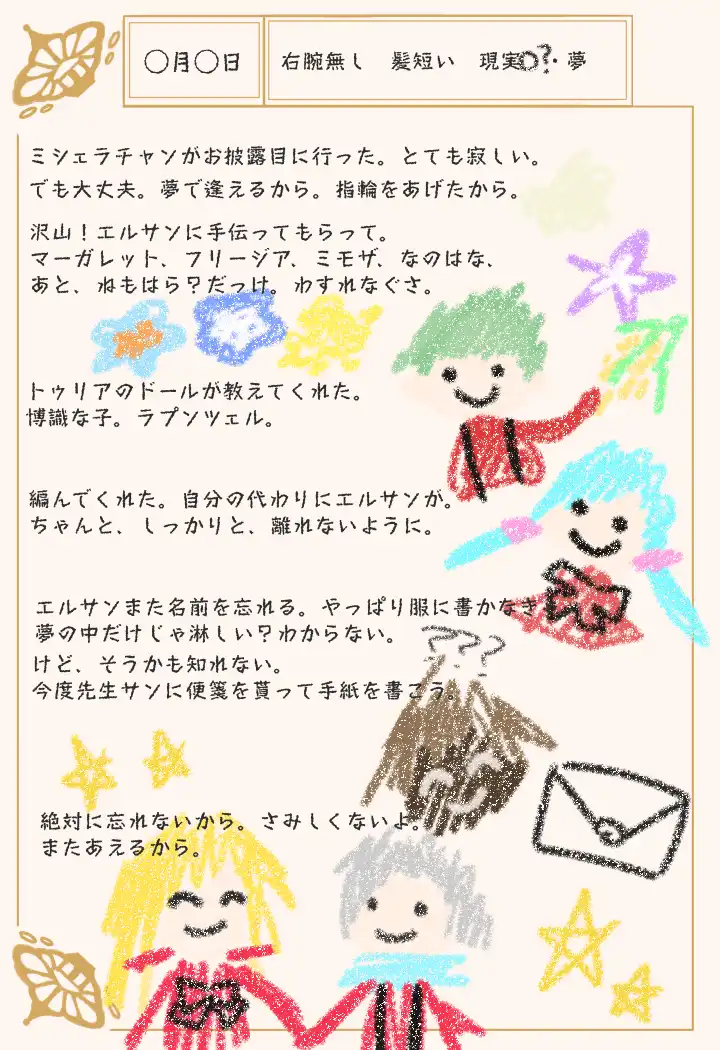 〇月〇日
右腕無し 髪短い 現実〇?・夢
ミシェラチャンがお披露目に行った。とても寂しい。
でも大丈夫。夢で逢えるから。指輪をあげたから。
沢山！エルサンに手伝ってもらって。
マーガレット、フリージア、ミモザ、なのはな、
あと、ねもはら？だっけ。わすれなぐさ。
トゥリアのドールが教えてくれた。
博識な子。ラプンツェル。
編んでくれた。自分の代わりにエルサンが。
ちゃんと、しっかりと、離れないように。
エルサンまた名前を忘れる。やっぱり服に書かなき
夢の中だけじゃ淋しい？わからない。
???
けど、そうかも知れない。
今度先生サンに便箋を貰って手紙を書こう。
絶対に忘れないから。さみしくないよ。
またあえるから。